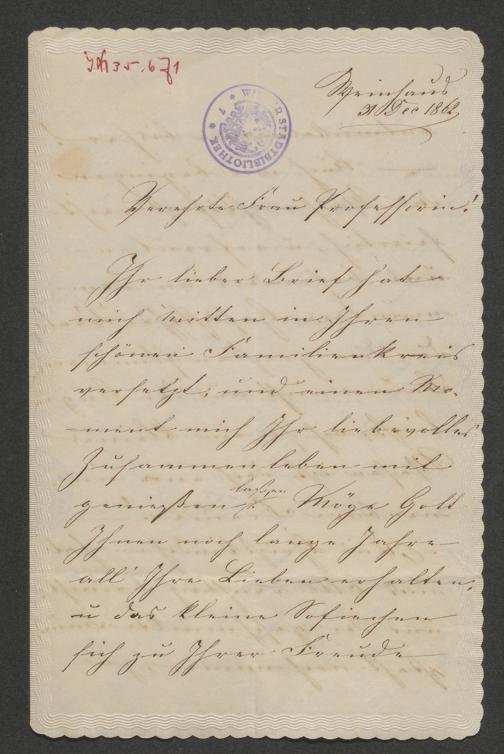 Weinhaus
31 Dec 1862
WIENER STADTBIBLIOTHEK
Verehrte Frau Professorin!
Ihr lieber Brief hat
mich mitten in Ihren
schönen Familienkreis
versetzt, und einen Mo-
ment mich Ihr liebevolles
Zusammenleben mit
genießen lassen. Möge Gott
Ihnen noch lange Jahre
all' Ihre Lieben erhalten,
u das kleine Sofiechen
sich zu Ihrer Freude